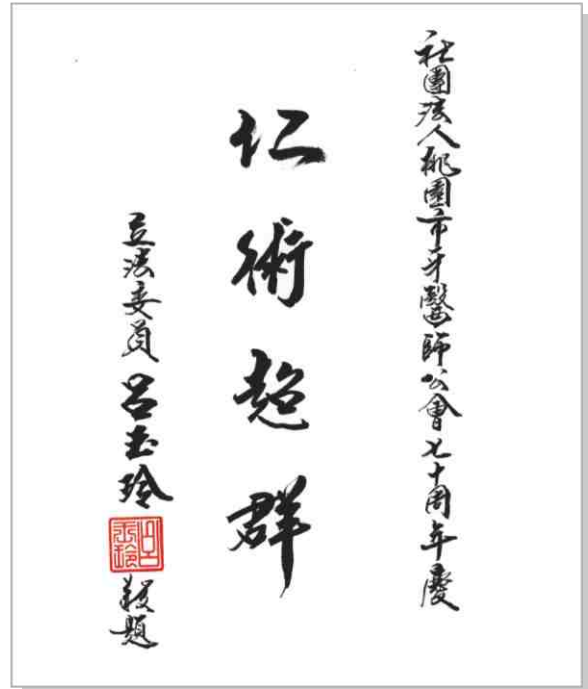 社團法人桃園市牙醫師公會七十周年慶
仁術超群
立法委員 呂玉玲 敬題
呂玉玲